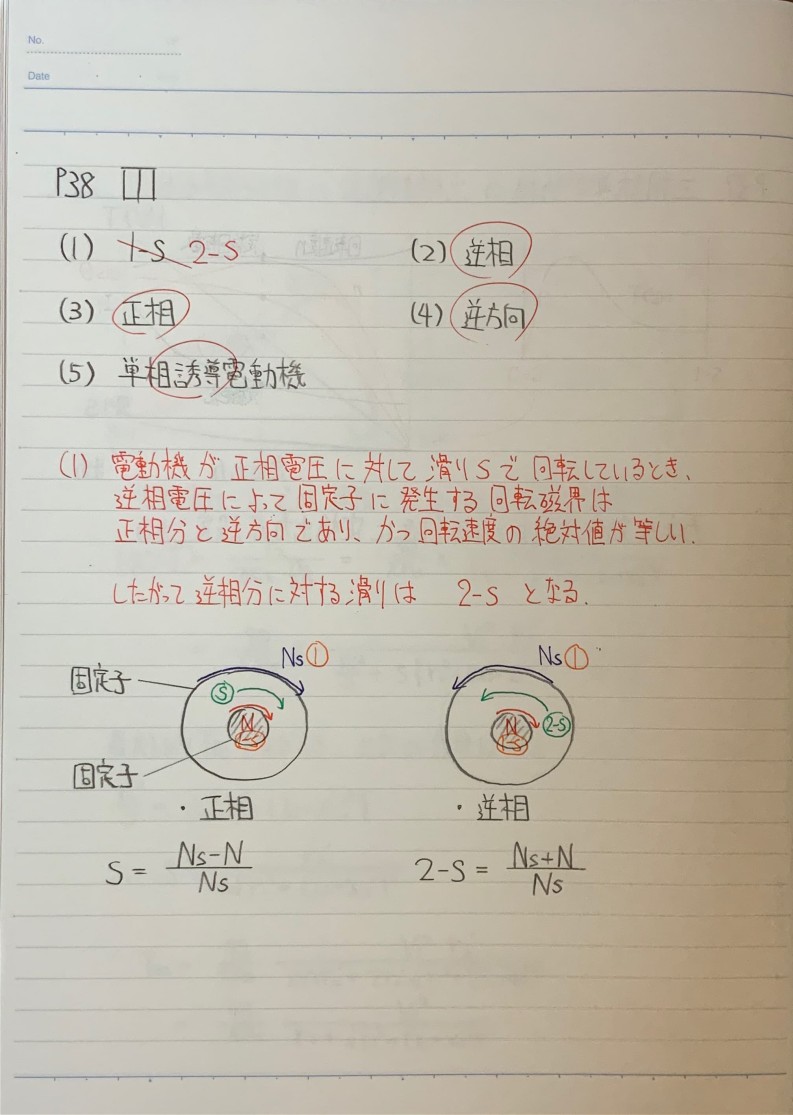 No.
Date
P38
(1) 1-S 2-S (2) 逆相
(3) 正相 (4) 逆方向
(5) 単相誘導電動機
(1) 電動機が正相電圧に対して滑りSで回転しているとき、
逆相電圧によって固定子に発生する回転磁界は
正相分と逆方向であり、かつ回転速度の絶対値が等しい.
したがって逆相分に対する滑りは 2-S となる.
Ns① Ns①
固定子
S
N N 2-S
1-S 1-S
固定子
・正相 ・逆相
S = Ns-N / Ns 2-S = Ns+N / Ns